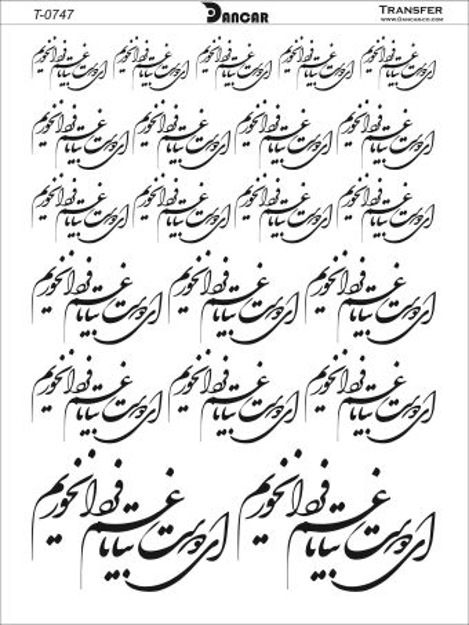 T-0747 DANCAR TRANSFER
www.Dancarco.com
ای دوست بیا تا غم فردا نخوریم ای دوست بیا تا غم فردا نخوریم ای دوست بیا تا غم فردا نخوریم ای دوست بیا تا غم فردا نخوریم ای دوست بیا تا غم فردا نخوریم
ای دوست بیا تا غم فردا نخوریم ای دوست بیا تا غم فردا نخوریم ای دوست بیا تا غم فردا نخوریم ای دوست بیا تا غم فردا نخوریم
ای دوست بیا تا غم فردا نخوریم ای دوست بیا تا غم فردا نخوریم ای دوست بیا تا غم فردا نخوریم ای دوست بیا تا غم فردا نخوریم
ای دوست بیا تا غم فردا نخوریم ای دوست بیا تا غم فردا نخوریم ای دوست بیا تا غم فردا نخوریم
ای دوست بیا تا غم فردا نخوریم ای دوست بیا تا غم فردا نخوریم ای دوست بیا تا غم فردا نخوریم
ای دوست بیا تا غم فردا نخوریم ای دوست بیا تا غم فردا نخوریم